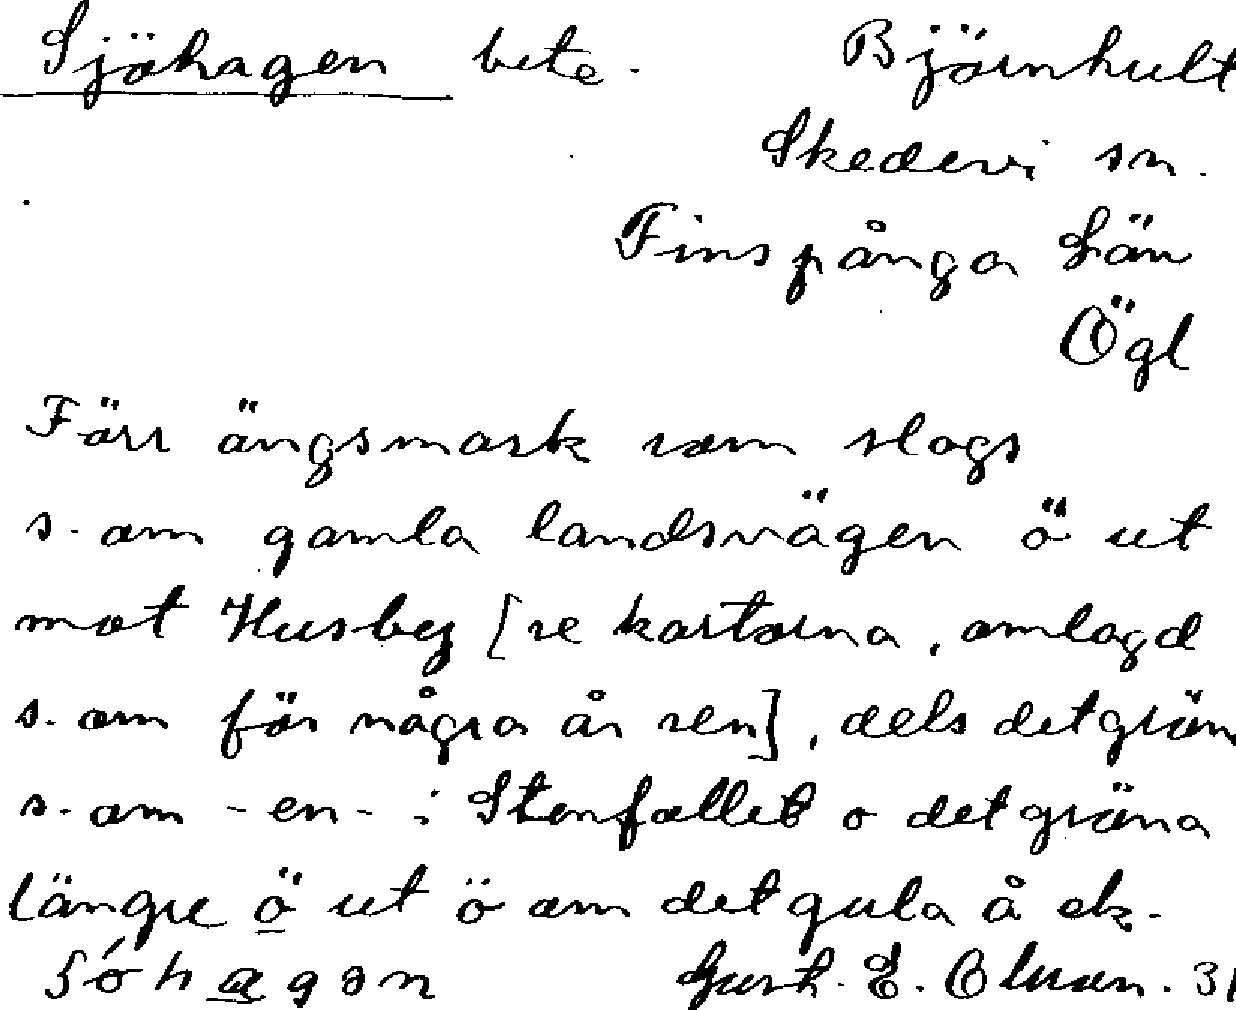 Sjöhagen bete. Björnhult
Skedevi sn.
Finspånga Län
Ögl
Förr ängsmark som slogs
s. om gamla landsvägen ö ut
mot Husby [se kartorna, omlagd
s. om för några år sen], dels det grön
s. om -en- i Stenfallet o det gröna
längre ö ut ö om det gula å ek.
Gust. E. Olman. 31